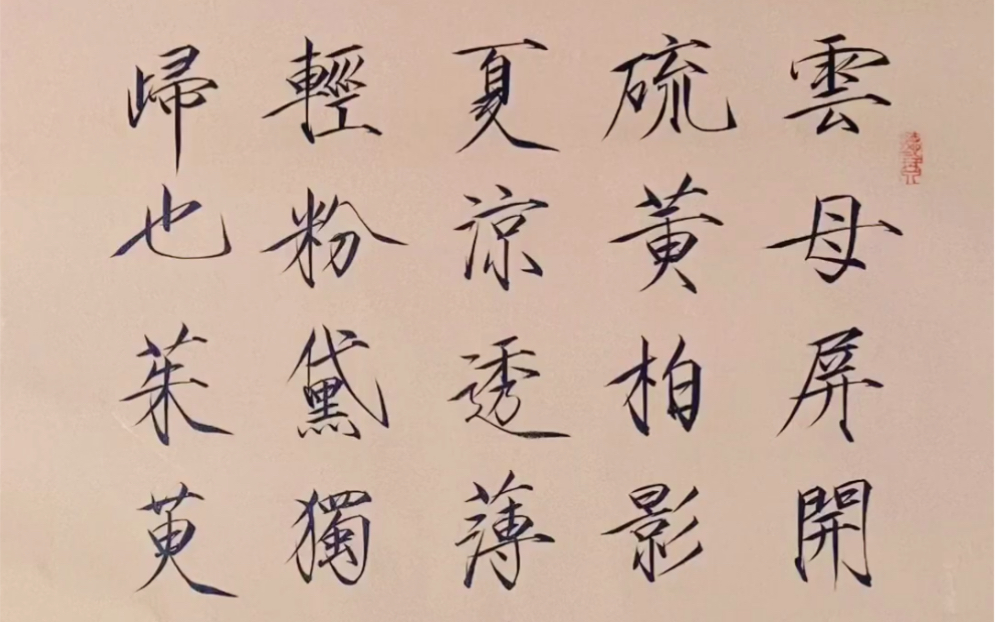 雲母屏開
硫黄柏影
夏涼透薄
輕粉黛獨
歸也茱萸